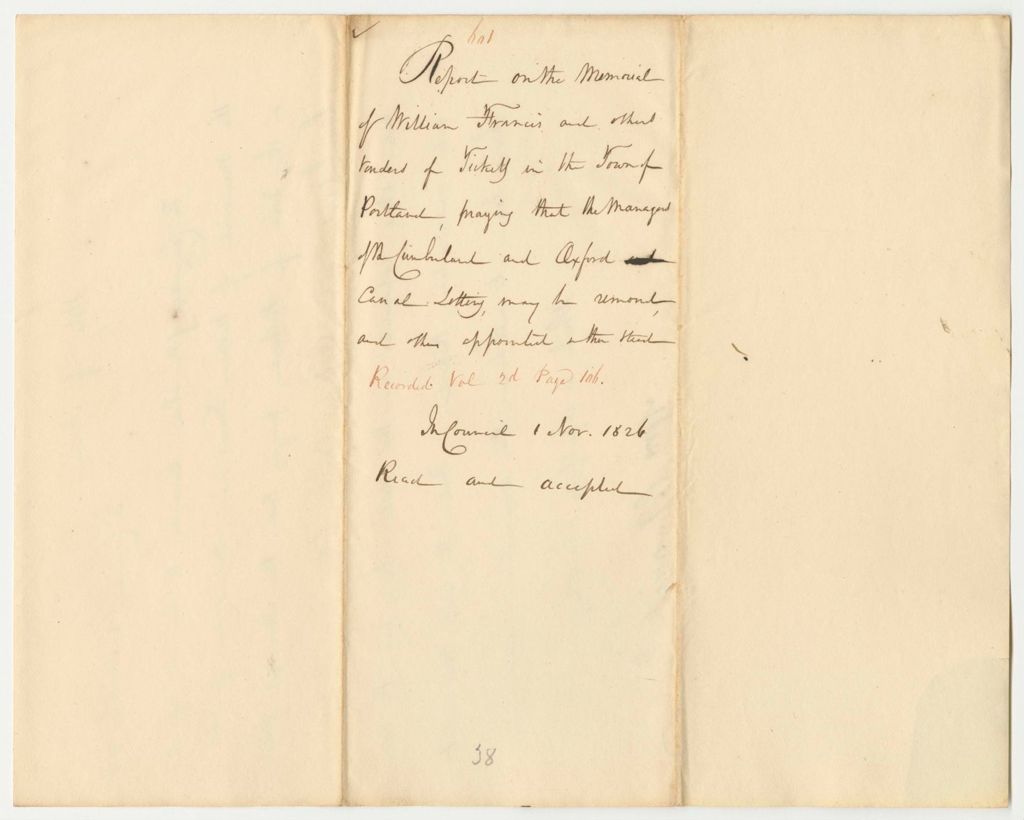 Report on the Memorial
of William Francis and others
venders of Tickets in the Town of
Portland, praying that the Managers
of the Cumberland and Oxford
Canal Lottery, may be removed,
and others appointed in their stead
Recorded Vol 2d Page 106.
In Council 1 Nov. 1826
Read and accepted
38